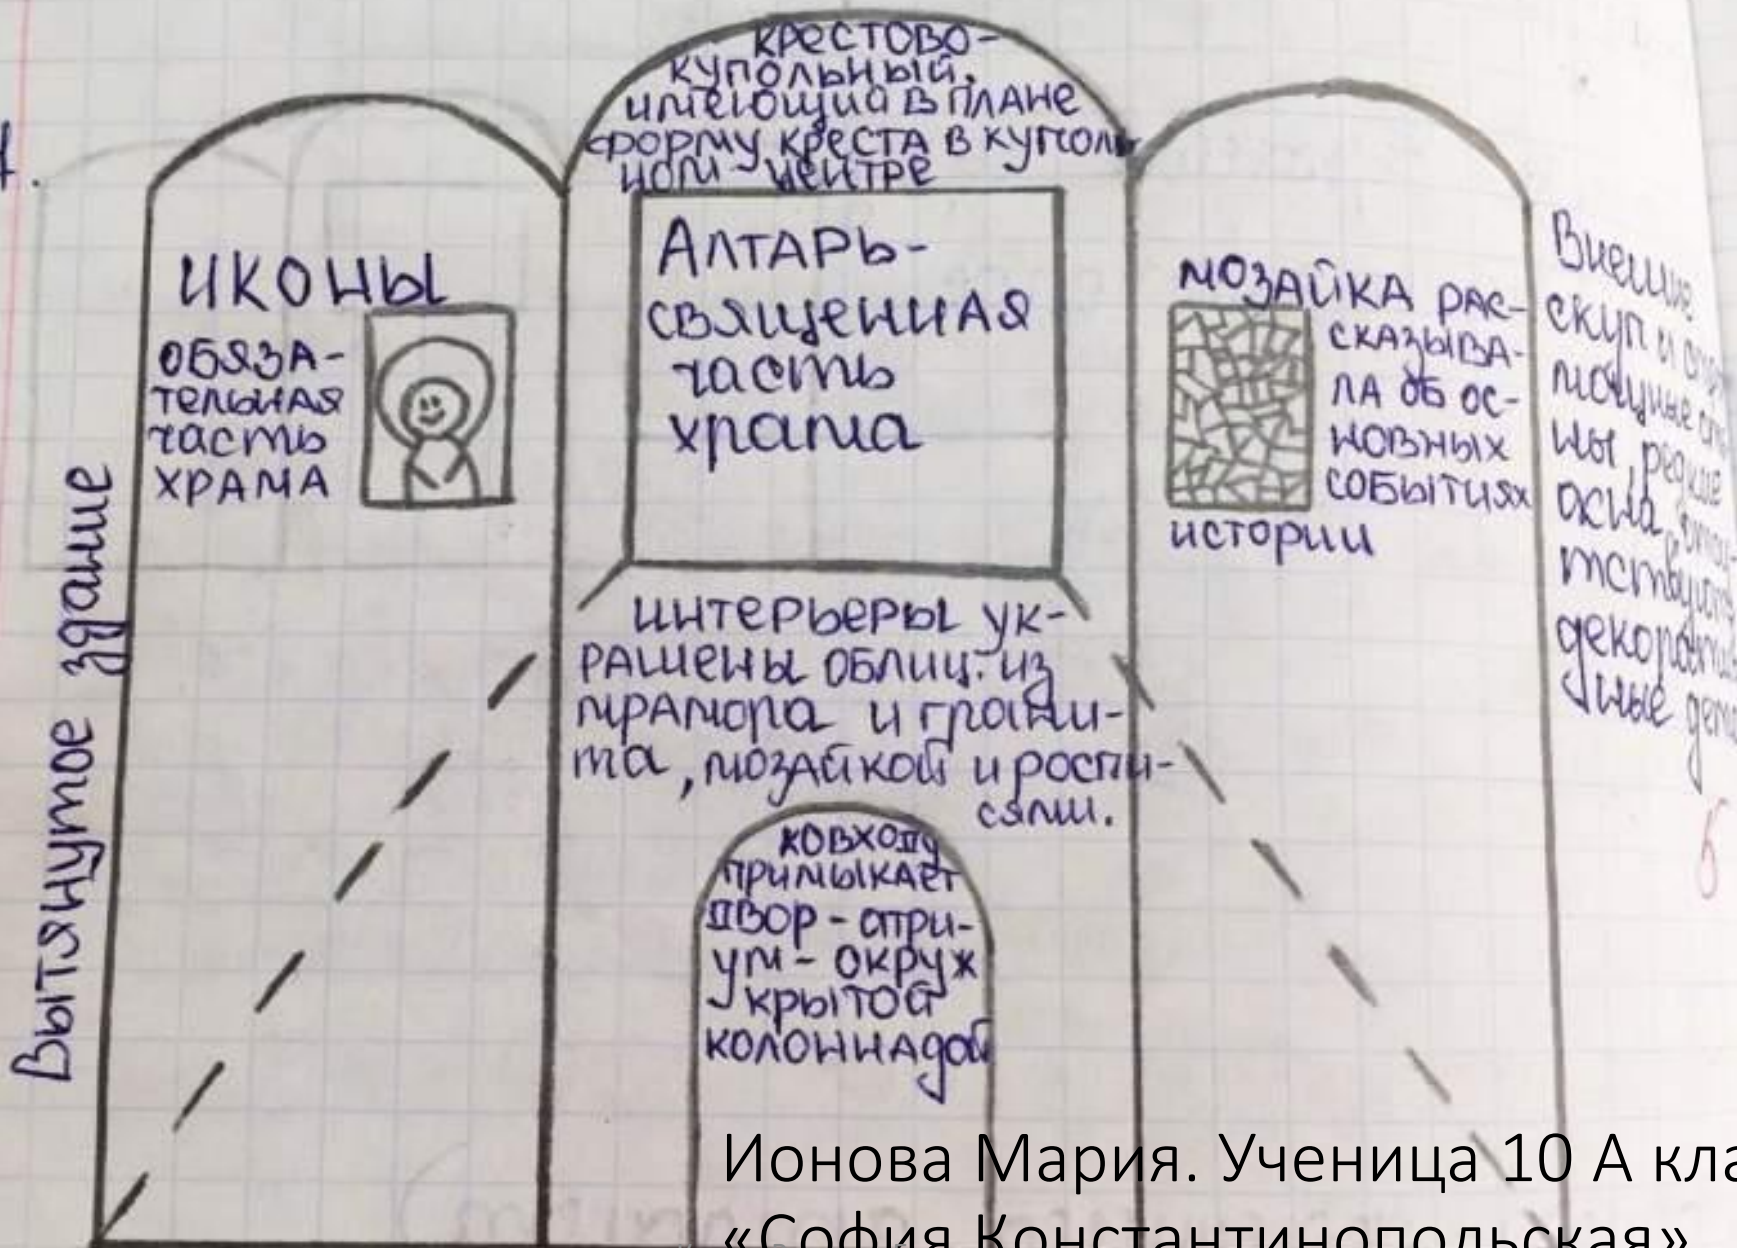 КРЕСТОВО-
КУПОЛЬНЫЙ,
имеющий в плане
форму креста в куполь
ном центре
ИКОНЫ
ОБЯЗА-
ТЕЛЬНАЯ
часть
ХРАМА
АЛТАРЬ-
священная
часть
храма
МОЗАЙКА РАС-
СКАЗЫВА-
ЛА ОБ ОС-
НОВНЫХ
СОБЫТИЯХ
истории
Внешне
скуп и
мощные
ны, редкие
окна,
тствуют
декоратив
ные
Вытянутое здание
ИНТЕРЬЕРЫ УК-
РАШЕНЫ ОБЛИЦ. ИЗ
мрамора и грани-
та, мозайкой и роспи-
сями.
КО ВХОДУ
ПРИМЫКАЕТ
ДВОР - атри-
ум - ОКРУЖ
КРЫТОЙ
КОЛОННАДОЙ
5
Ионова Мария. Ученица 10 А кла
«София Константинопольская»